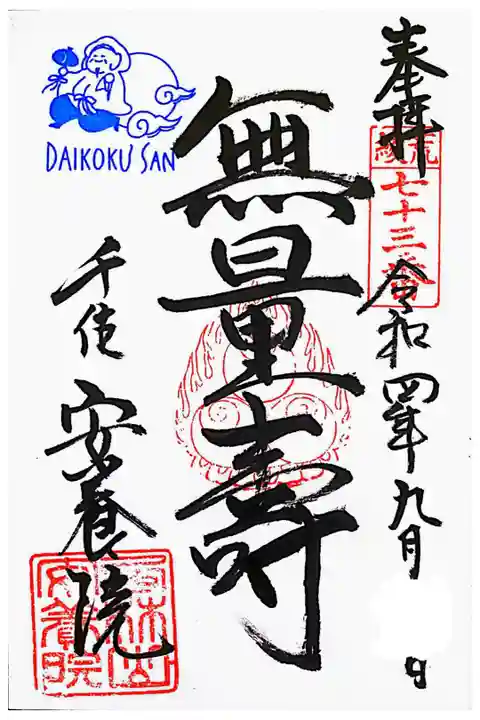 奉拝
荒綾
七十三番
令和四年九月 日
無量壽
DAIKOKU SAN
千住
安養院